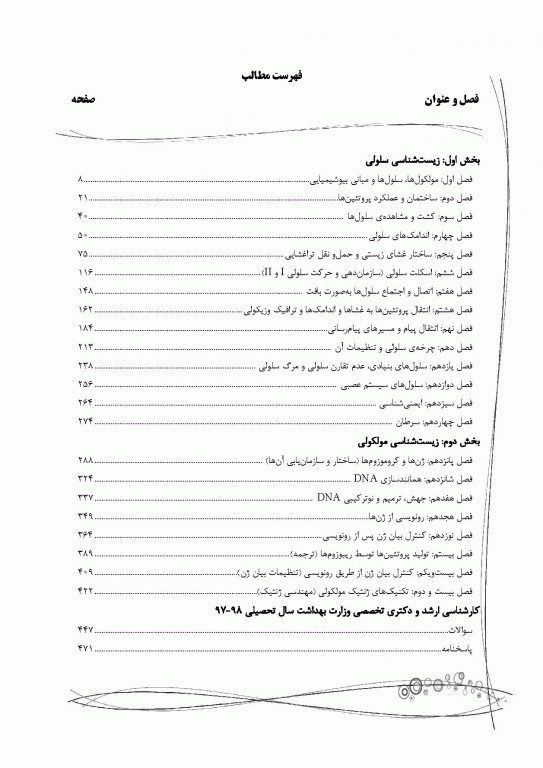 فهرست مطالب
فصل و عنوان صفحه
بخش اول: زیست‌شناسی سلولی
فصل اول: مولکول‌ها، سلول‌ها و مبانی بیوشیمیایی ۸
فصل دوم: ساختمان و عملکرد پروتئین‌ها ۲۱
فصل سوم: کشت و مشاهده‌ی سلول‌ها ۴۰
فصل چهارم: اندامک‌های سلولی ۵۰
فصل پنجم: ساختار غشای زیستی و حمل‌و نقل تراغشایی ۷۵
فصل ششم: اسکلت سلولی (سازمان‌دهی و حرکت سلولی I و II) ۱۱۶
فصل هفتم: اتصال و اجتماع سلول‌ها به‌صورت بافت ۱۴۸
فصل هشتم: انتقال پروتئین‌ها به غشاها و اندامک‌ها و ترافیک وزیکولی ۱۶۲
فصل نهم: انتقال پیام و مسیرهای پیام‌رسانی ۱۸۴
فصل دهم: چرخه‌ی سلولی و تنظیمات آن ۲۱۳
فصل یازدهم: سلول‌های بنیادی، عدم تقارن سلولی و مرگ سلولی ۲۳۸
فصل دوازدهم: سلول‌های سیستم عصبی ۲۵۶
فصل سیزدهم: ایمنی‌شناسی ۲۶۴
فصل چهاردهم: سرطان ۲۷۴
بخش دوم: زیست‌شناسی مولکولی
فصل پانزدهم: ژن‌ها و کروموزوم‌ها (ساختار و سازمان‌یابی آن‌ها) ۲۸۸
فصل شانزدهم: همانندسازی DNA ۳۲۴
فصل هفدهم: جهش، ترمیم و نوترکیبی DNA ۳۳۷
فصل هجدهم: رونویسی از ژن‌ها ۳۴۹
فصل نوزدهم: کنترل بیان ژن پس از رونویسی ۳۶۴
فصل بیستم: تولید پروتئین‌ها توسط ریبوزوم‌ها (ترجمه) ۳۸۹
فصل بیست‌ویکم: کنترل بیان ژن از طریق رونویسی (تنظیمات بیان ژن) ۴۰۹
فصل بیست و دوم: تکنیک‌های ژنتیک مولکولی (مهندسی ژنتیک) ۴۲۲
کارشناسی ارشد و دکتری تخصصی وزارت بهداشت سال تحصیلی ۹۸-۹۷
سوالات ۴۴۷
پاسخنامه ۴۷۱